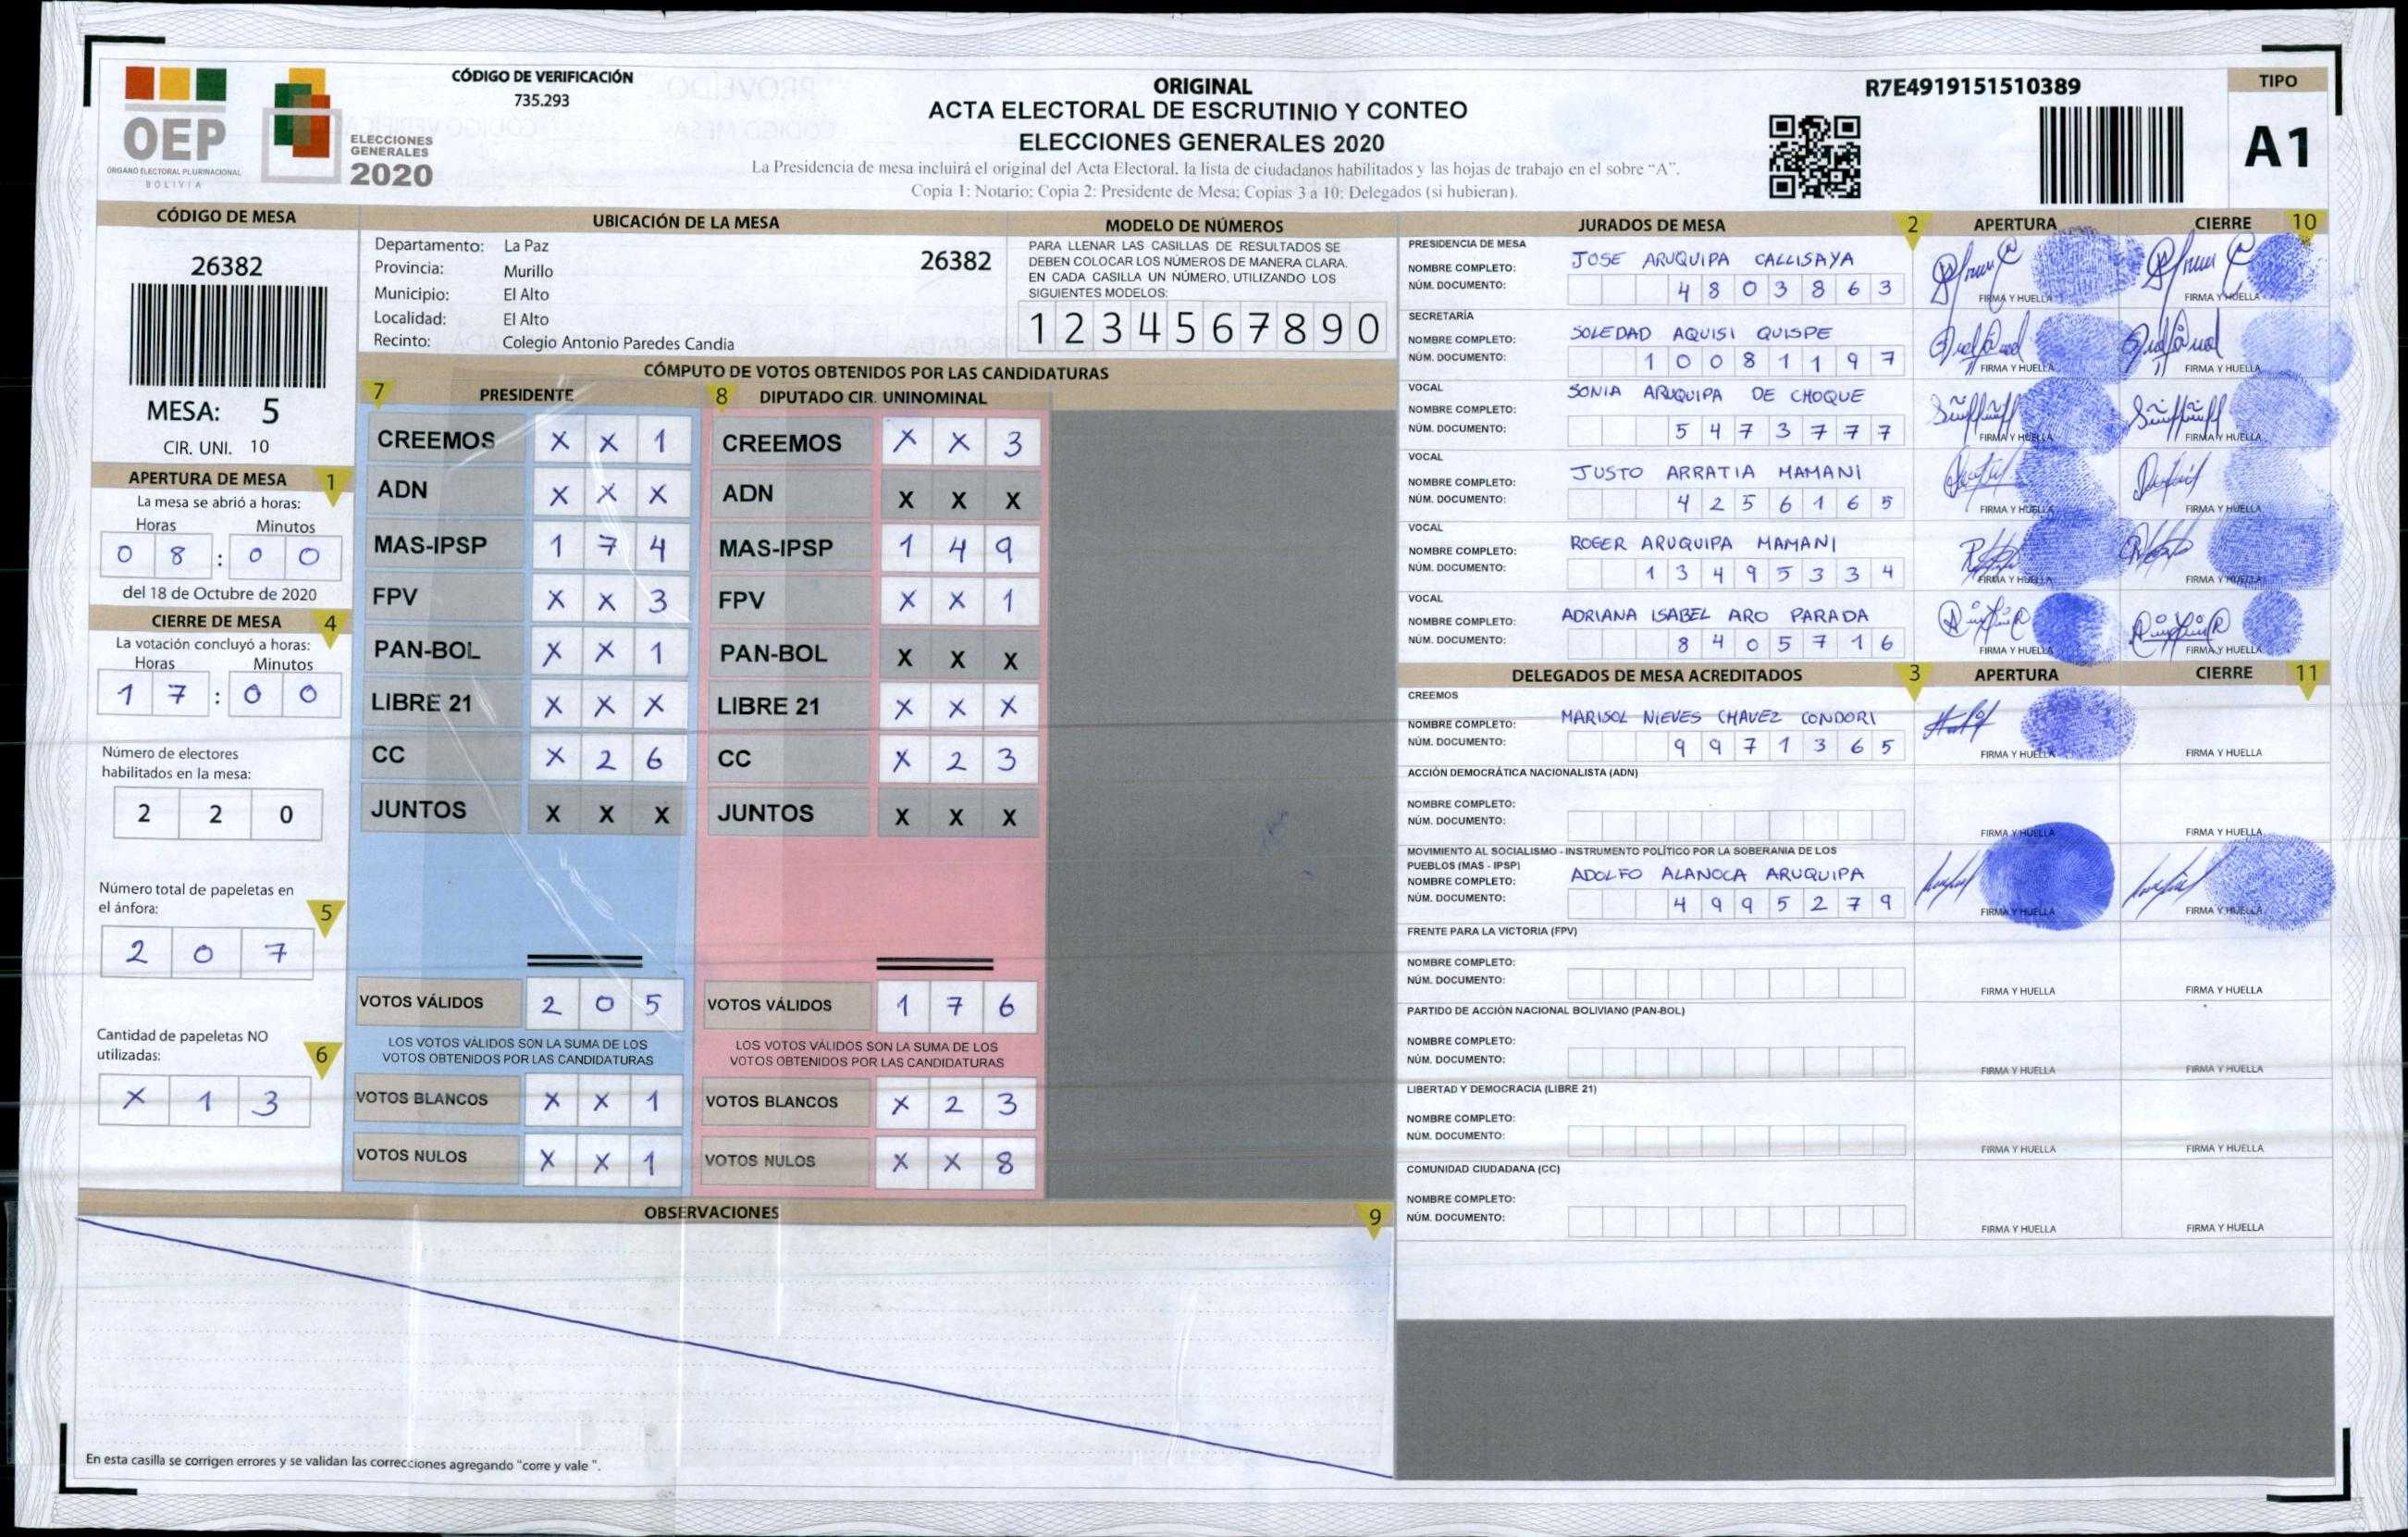 OEP
ÓRGANO ELECTORAL PLURINACIONAL
BOLIVIA
ELECCIONES
GENERALES
2020
CÓDIGO DE VERIFICACIÓN
735.293
ORIGINAL
ACTA ELECTORAL DE ESCRUTINIO Y CONTEO
ELECCIONES GENERALES 2020
La Presidencia de mesa incluirá el original del Acta Electoral, la lista de ciudadanos habilitados y las hojas de trabajo en el sobre "A".
Copia 1: Notario; Copia 2: Presidente de Mesa; Copias 3 a 10: Delegados (si hubieran).
R7E4919151510389
TIPO
A1
CÓDIGO DE MESA
26382
MESA: 5
CIR. UNI. 10
APERTURA DE MESA 1
La mesa se abrió a horas:
Horas Minutos
0 8 : 0 0
del 18 de Octubre de 2020
CIERRE DE MESA 4
La votación concluyó a horas:
Horas Minutos
1 7 : 0 0
Número de electores
habilitados en la mesa:
2 2 0
Número total de papeletas en
el ánfora: 5
2 0 7
Cantidad de papeletas NO
utilizadas: 6
X 1 3
UBICACIÓN DE LA MESA
Departamento: La Paz
Provincia: Murillo
Municipio: El Alto
Localidad: El Alto
Recinto: Colegio Antonio Paredes Candia
26382
MODELO DE NÚMEROS
PARA LLENAR LAS CASILLAS DE RESULTADOS SE
DEBEN COLOCAR LOS NÚMEROS DE MANERA CLARA.
EN CADA CASILLA UN NÚMERO, UTILIZANDO LOS
SIGUIENTES MODELOS:
1 2 3 4 5 6 7 8 9 0
CÓMPUTO DE VOTOS OBTENIDOS POR LAS CANDIDATURAS
7 PRESIDENTE
CREEMOS X X 1
ADN X X X
MAS-IPSP 1 7 4
FPV X X 3
PAN-BOL X X 1
LIBRE 21 X X X
CC X 2 6
JUNTOS X X X
VOTOS VÁLIDOS 2 0 5
LOS VOTOS VÁLIDOS SON LA SUMA DE LOS
VOTOS OBTENIDOS POR LAS CANDIDATURAS
VOTOS BLANCOS X X 1
VOTOS NULOS X X 1
8 DIPUTADO CIR. UNINOMINAL
CREEMOS X X 3
ADN X X X
MAS-IPSP 1 4 9
FPV X X 1
PAN-BOL X X X
LIBRE 21 X X X
CC X 2 3
JUNTOS X X X
VOTOS VÁLIDOS 1 7 6
LOS VOTOS VÁLIDOS SON LA SUMA DE LOS
VOTOS OBTENIDOS POR LAS CANDIDATURAS
VOTOS BLANCOS X 2 3
VOTOS NULOS X X 8
OBSERVACIONES 9
En esta casilla se corrigen errores y se validan las correcciones agregando "corre y vale ".
JURADOS DE MESA 2 APERTURA CIERRE 10
PRESIDENCIA DE MESA
NOMBRE COMPLETO: JOSE ARUQUIPA CALLISAYA
NÚM. DOCUMENTO: 4 8 0 3 8 6 3
FIRMA Y HUELLA FIRMA Y HUELLA
SECRETARÍA
NOMBRE COMPLETO: SOLEDAD AQUISI QUISPE
NÚM. DOCUMENTO: 1 0 0 8 1 1 9 7
FIRMA Y HUELLA FIRMA Y HUELLA
VOCAL
NOMBRE COMPLETO: SONIA ARUQUIPA DE CHOQUE
NÚM. DOCUMENTO: 5 4 7 3 7 7 7
FIRMA Y HUELLA FIRMA Y HUELLA
VOCAL
NOMBRE COMPLETO: JUSTO ARRATIA MAMANI
NÚM. DOCUMENTO: 4 2 5 6 1 6 5
FIRMA Y HUELLA FIRMA Y HUELLA
VOCAL
NOMBRE COMPLETO: ROGER ARUQUIPA MAMANI
NÚM. DOCUMENTO: 1 3 4 9 5 3 3 4
FIRMA Y HUELLA FIRMA Y HUELLA
VOCAL
NOMBRE COMPLETO: ADRIANA ISABEL ARO PARADA
NÚM. DOCUMENTO: 8 4 0 5 7 1 6
FIRMA Y HUELLA FIRMA Y HUELLA
DELEGADOS DE MESA ACREDITADOS 3 APERTURA CIERRE 11
CREEMOS
NOMBRE COMPLETO: MARISOL NIEVES CHAVEZ CONDORI
NÚM. DOCUMENTO: 9 9 7 1 3 6 5
FIRMA Y HUELLA FIRMA Y HUELLA
ACCIÓN DEMOCRÁTICA NACIONALISTA (ADN)
NOMBRE COMPLETO:
NÚM. DOCUMENTO:
FIRMA Y HUELLA FIRMA Y HUELLA
MOVIMIENTO AL SOCIALISMO - INSTRUMENTO POLÍTICO POR LA SOBERANIA DE LOS
PUEBLOS (MAS - IPSP)
NOMBRE COMPLETO: ADOLFO ALANOCA ARUQUIPA
NÚM. DOCUMENTO: 4 9 9 5 2 7 9
FIRMA Y HUELLA FIRMA Y HUELLA
FRENTE PARA LA VICTORIA (FPV)
NOMBRE COMPLETO:
NÚM. DOCUMENTO:
FIRMA Y HUELLA FIRMA Y HUELLA
PARTIDO DE ACCIÓN NACIONAL BOLIVIANO (PAN-BOL)
NOMBRE COMPLETO:
NÚM. DOCUMENTO:
FIRMA Y HUELLA FIRMA Y HUELLA
LIBERTAD Y DEMOCRACIA (LIBRE 21)
NOMBRE COMPLETO:
NÚM. DOCUMENTO:
FIRMA Y HUELLA FIRMA Y HUELLA
COMUNIDAD CIUDADANA (CC)
NOMBRE COMPLETO:
NÚM. DOCUMENTO:
FIRMA Y HUELLA FIRMA Y HUELLA